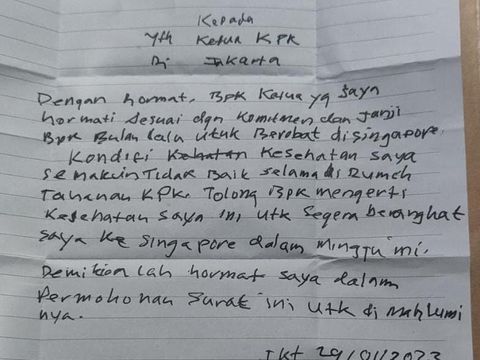 Kepada
Yth Ketua KPK
Di Jakarta
Dengan hormat, Bpk Ketua yg saya
hormati sesuai dgn Komitmen dan Janji
Bpk Bulan lalu utuk Berobat disingapore.
Kondisi Kesehatan saya
semakin Tidak Baik selama di Rumah
Tahanan KPK. Tolong Bpk mengerti
Kesehatan saya ini, utk segera berangkat
saya ke singapore dalam minggu ini.
Demikian lah hormat saya dalam
Permohonan surat ini utk di maklumi
nya.
Jkt 29/01/2023